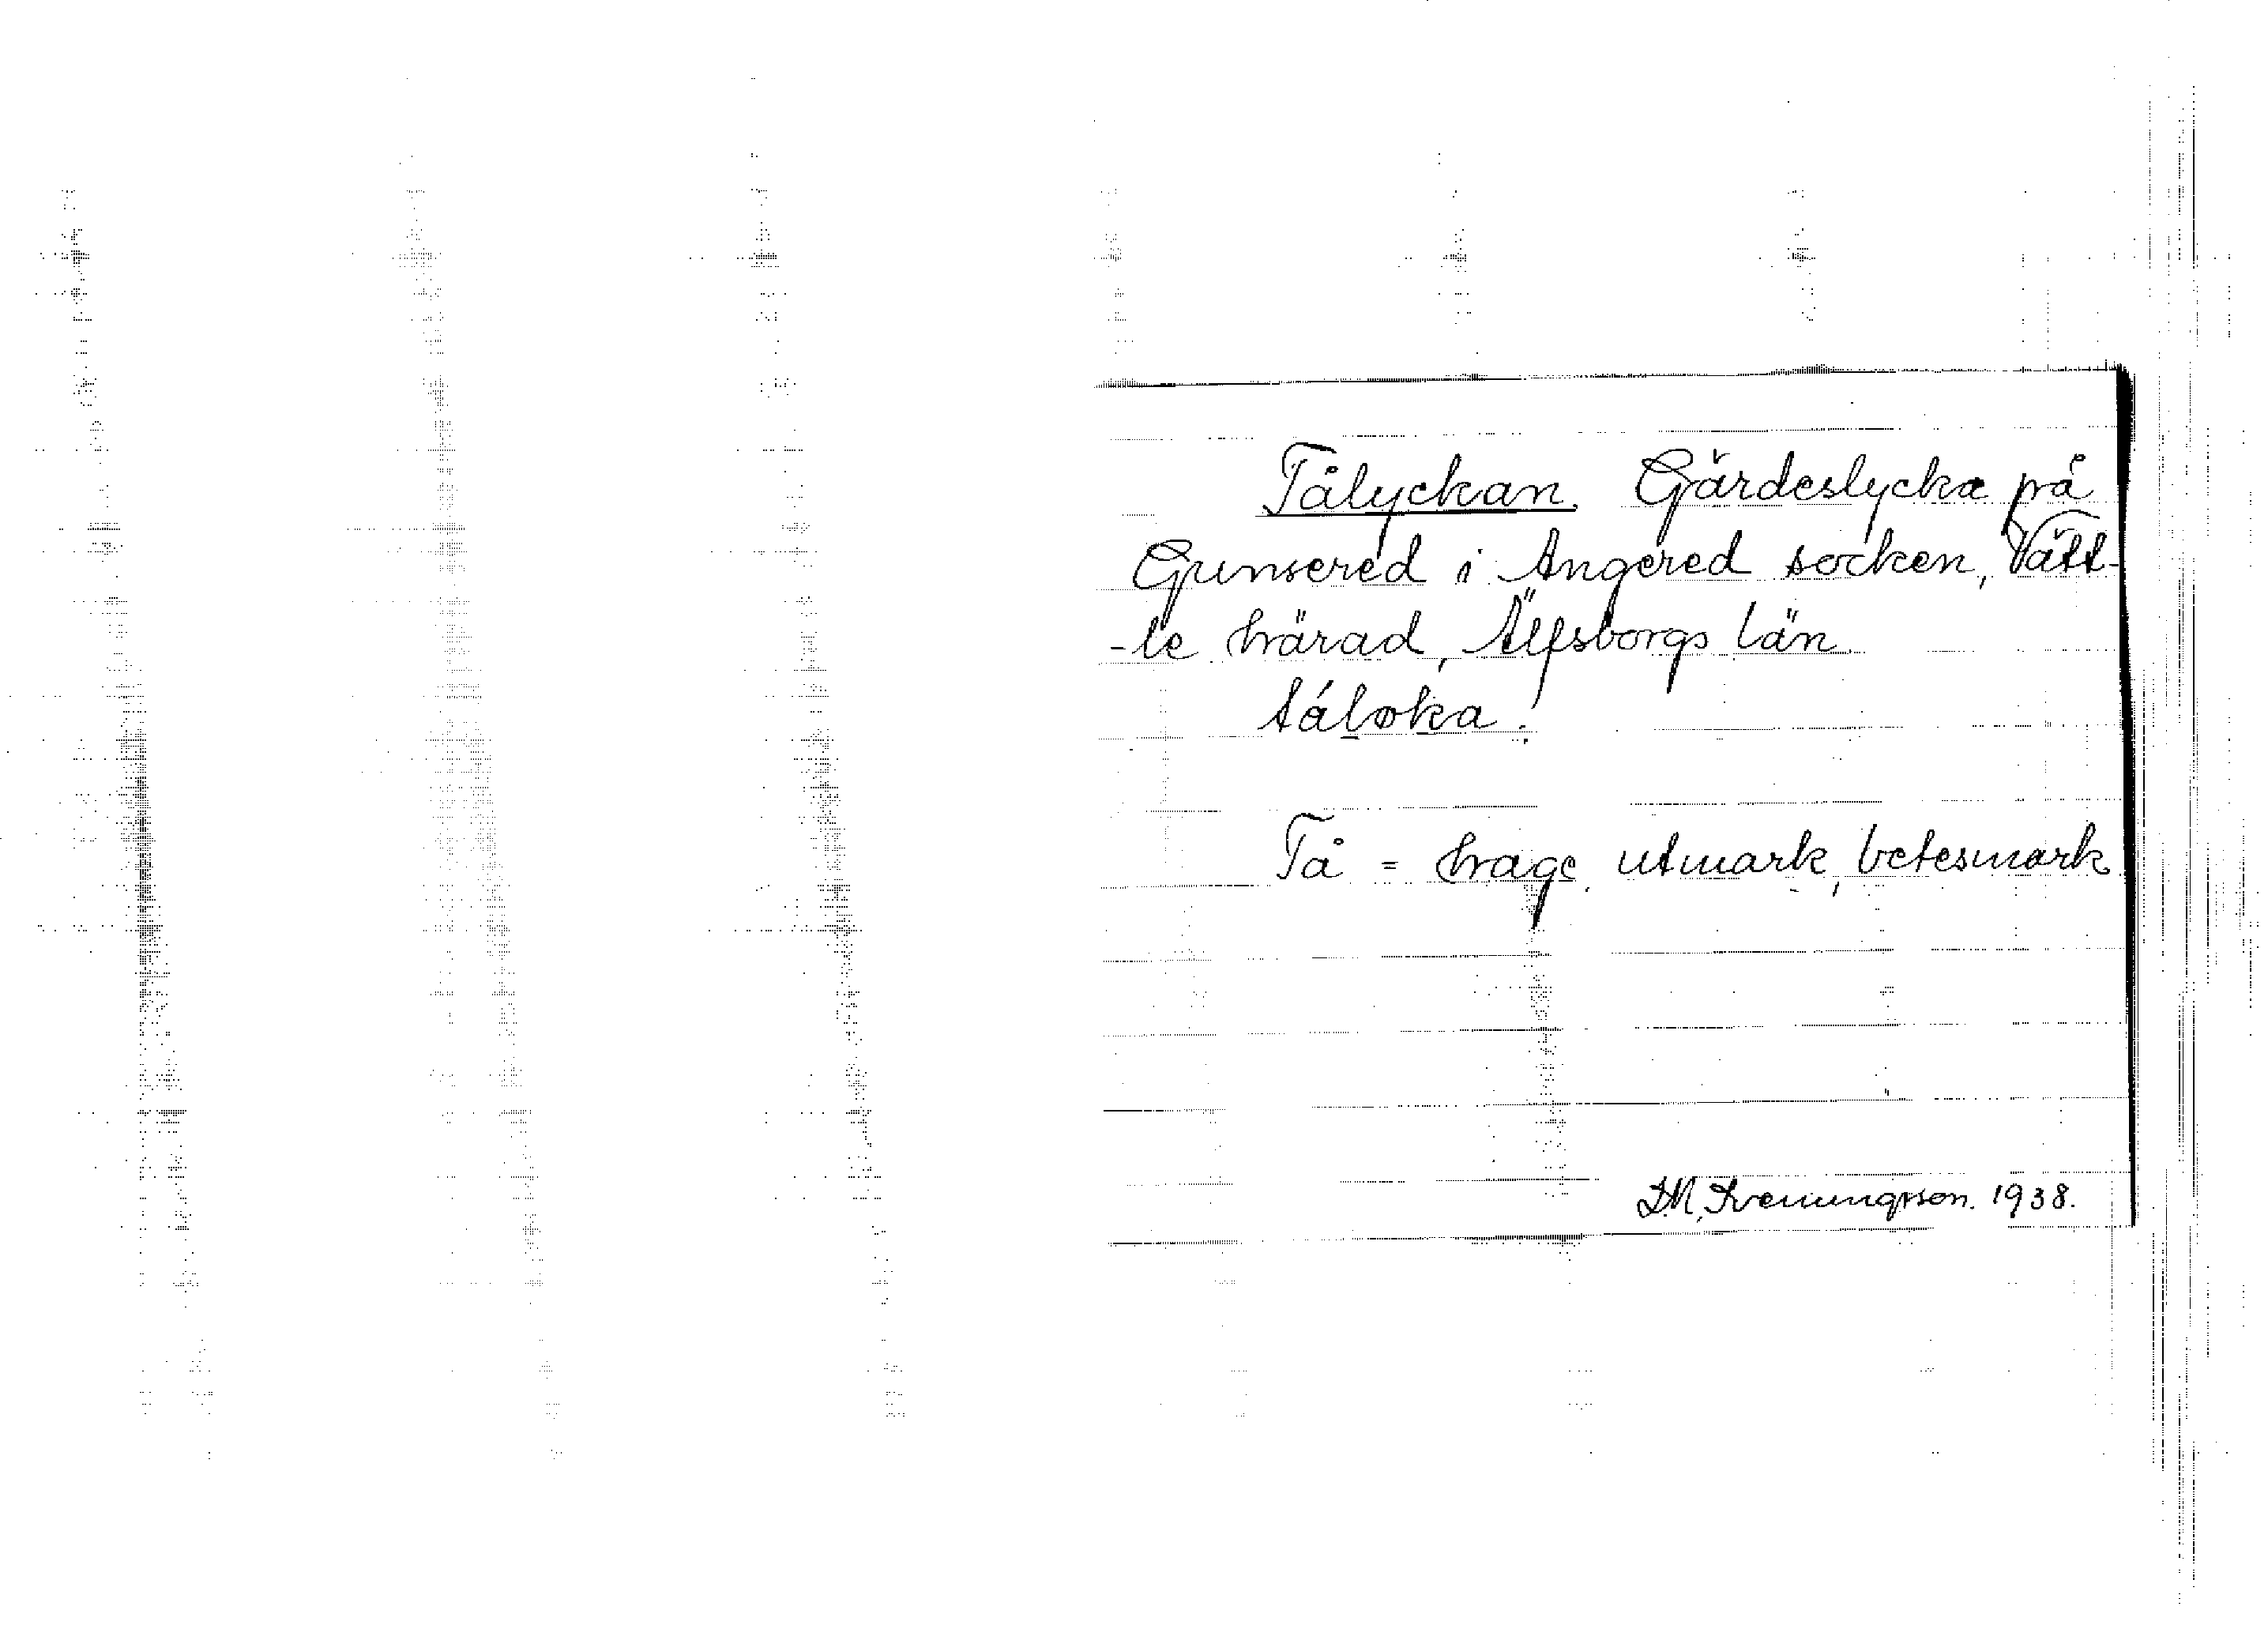 Tålyckan. Gärdeslycka på
Gunsered i Angered socken, Vätt-
-le härad, Älfsborgs län.
táløka.
Tå = hage, utmark, betesmark
D.M. Svenungsson. 1938.